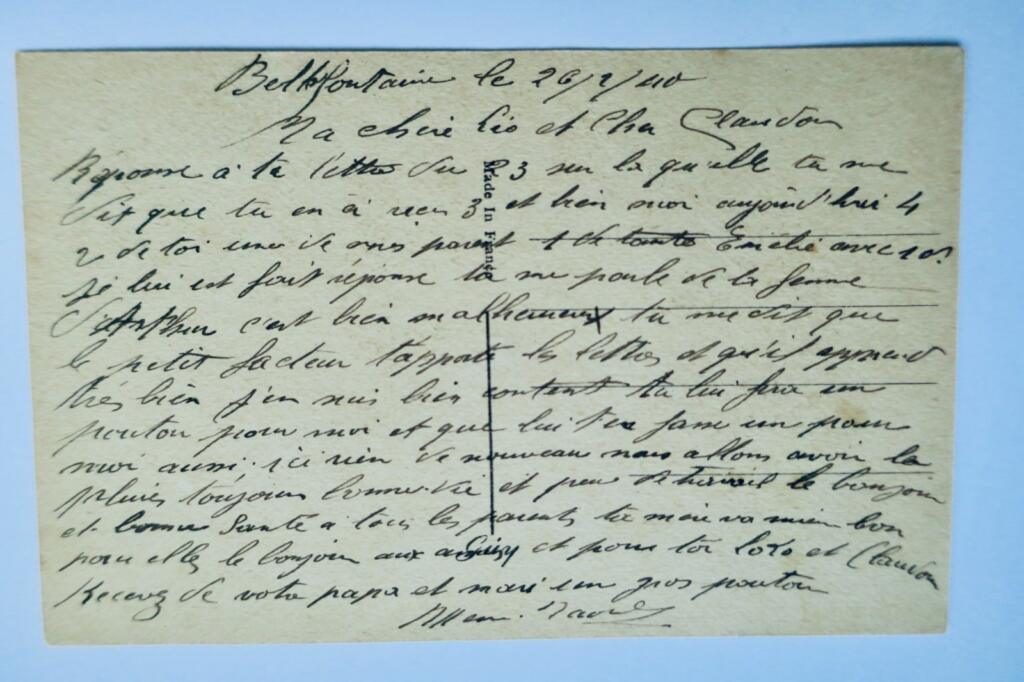 Bellefontaine le 26/2/40
Ma chère Lio et Cher Claudon
Réponse à ta lettre du 23 sur la qu'elle tu me
dit que tu en à recu 3 et bien moi aujourd'hui 4
2 de toi une de mes parent 1 de tante Emélie avec 10f
je lui est fait réponse tu me parle de la femme
d'Arthur c'est bien malheureux tu me dit que
le petit facteur t'apporte les lettres et qu'il apprend
très bien j'en suis bien content tu lui fera un
pouton pour moi et que lui t'en fasse un pour
moi aussi. ici rien de nouveau nous allons avoir la
pluies toujours bonne vie et peu de travail le bonjour
et bonne Santé à tous les parents ta mère va mieu bon
pour elle le bonjour aux et pour toi Loro et Claudon
Recevez de votre papa et mari un gros pouton
Made In France